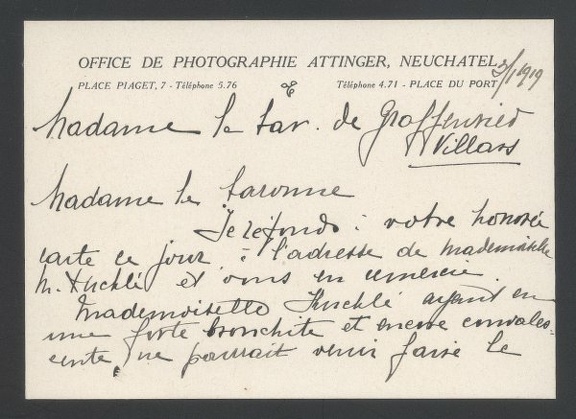 OFFICE DE PHOTOGRAPHIE ATTINGER, NEUCHATEL
PLACE PIAGET, 7 - Téléphone 5.76 Téléphone 4.71 - PLACE DU PORT
3/1 1919
Madame la bar. de Graffenried
Villars
Madame la baronne
Je réponds à votre honorée
carte ce jour à l'adresse de Mademoiselle
M. et vous en remercie.
Mademoiselle ayant eu
une forte bronchite et encore convales-
cente, ne pourrait venir faire le